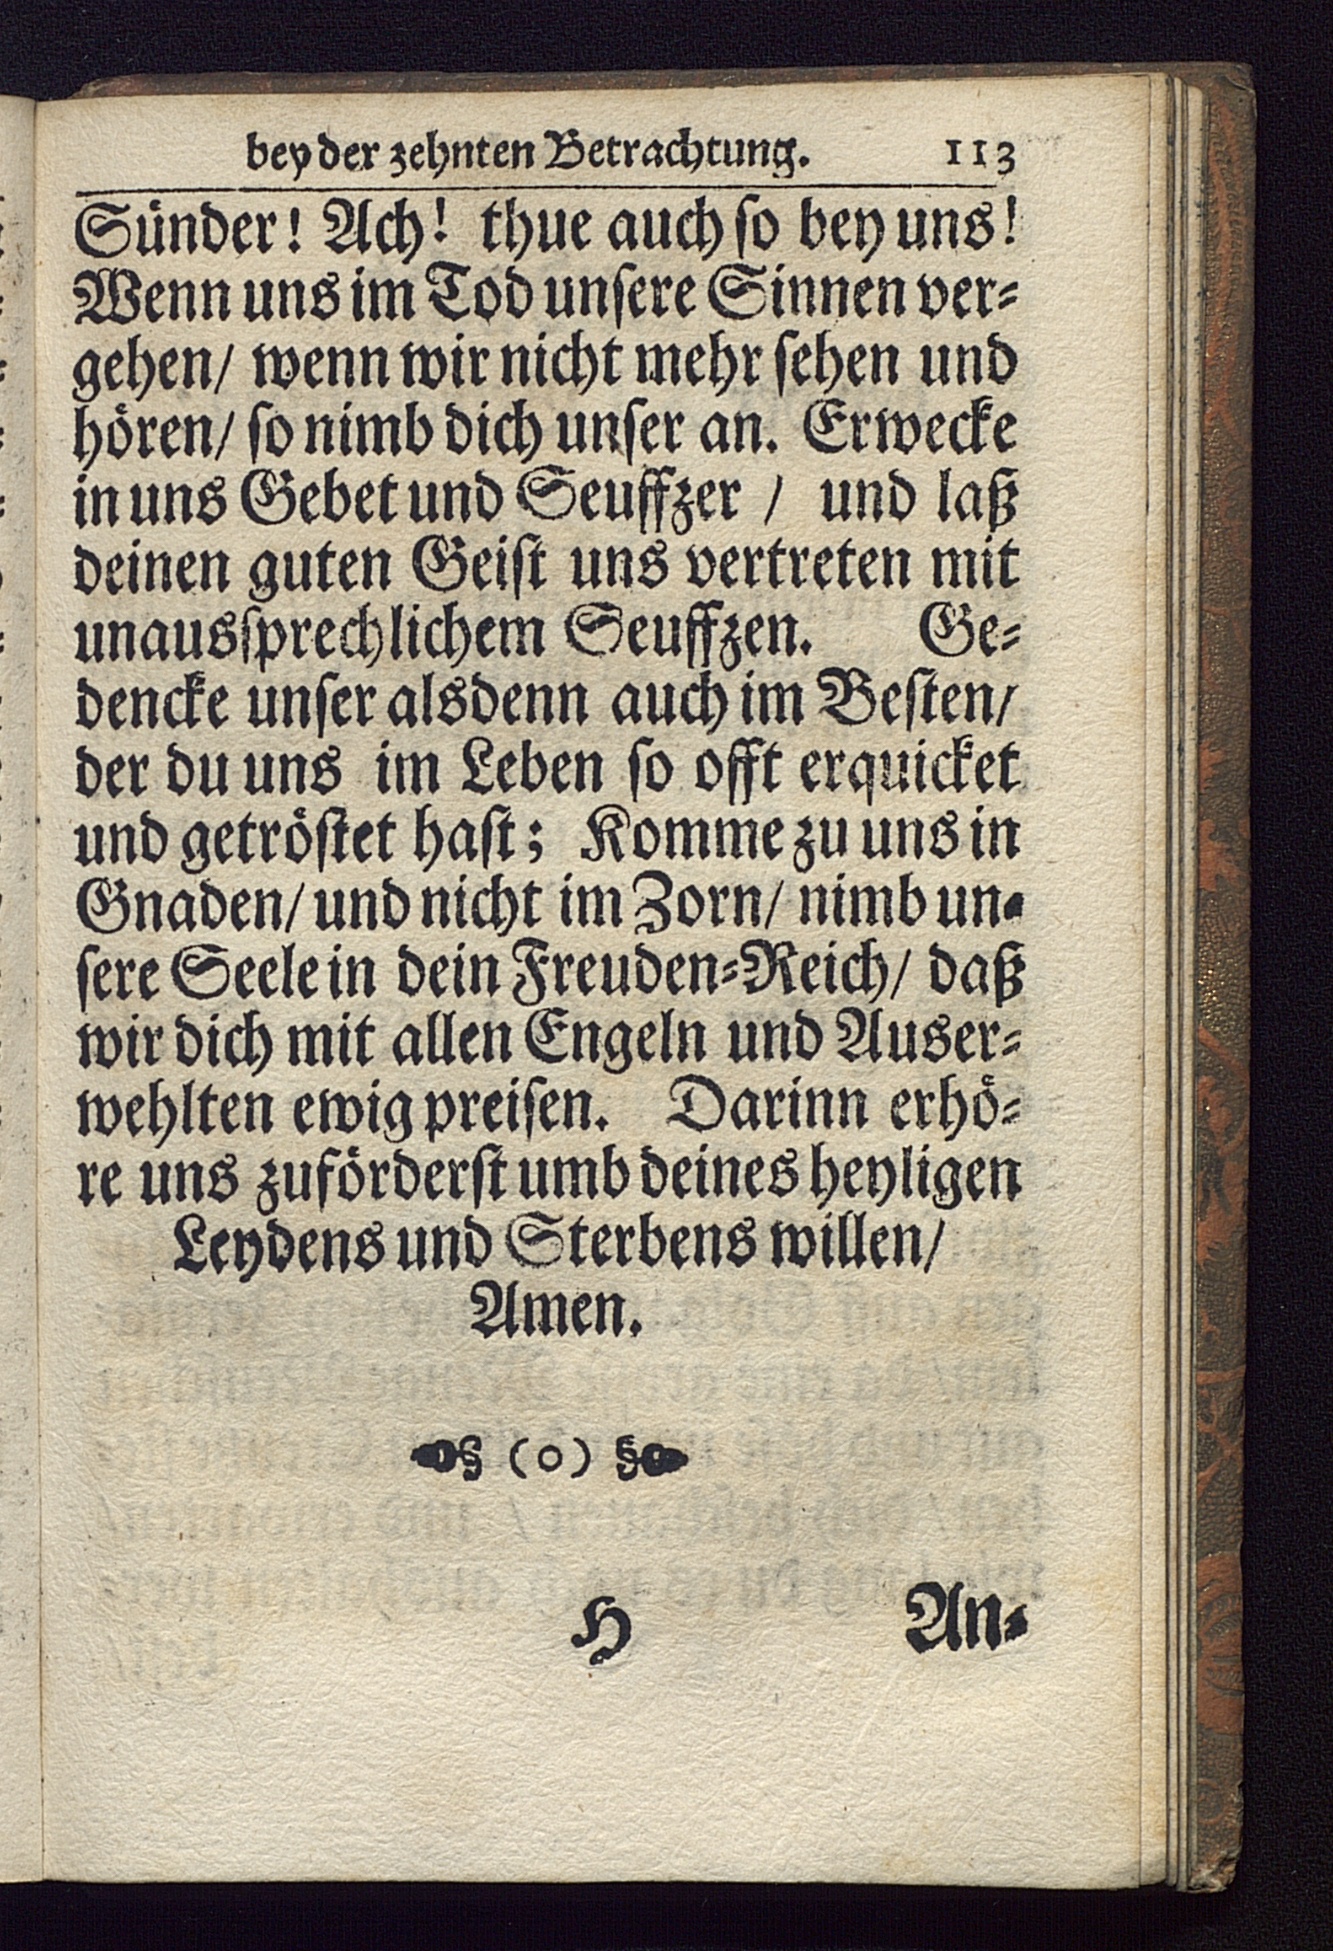 bey der zehnten Betrachtung. 113
Sünder! Ach! thue auch so bey uns!
Wenn uns im Tod unsere Sinnen ver-
gehen/ wenn wir nicht mehr sehen und
hören/ so nimb dich unser an. Erwecke
in uns Gebet und Seuffzer / und laß
deinen guten Geist uns vertreten mit
unaussprechlichem Seuffzen. Ge-
dencke unser alsdenn auch im Besten/
der du uns im Leben so offt erquicket
und getröstet hast; Komme zu uns in
Gnaden/ und nicht im Zorn/ nimb un-
sere Seele in dein Freuden-Reich/ daß
wir dich mit allen Engeln und Auser-
wehlten ewig preisen. Darinn erhö-
re uns zuförderst umb deines heyligen
Leydens und Sterbens willen/
Amen.
§ (o) §
H An-